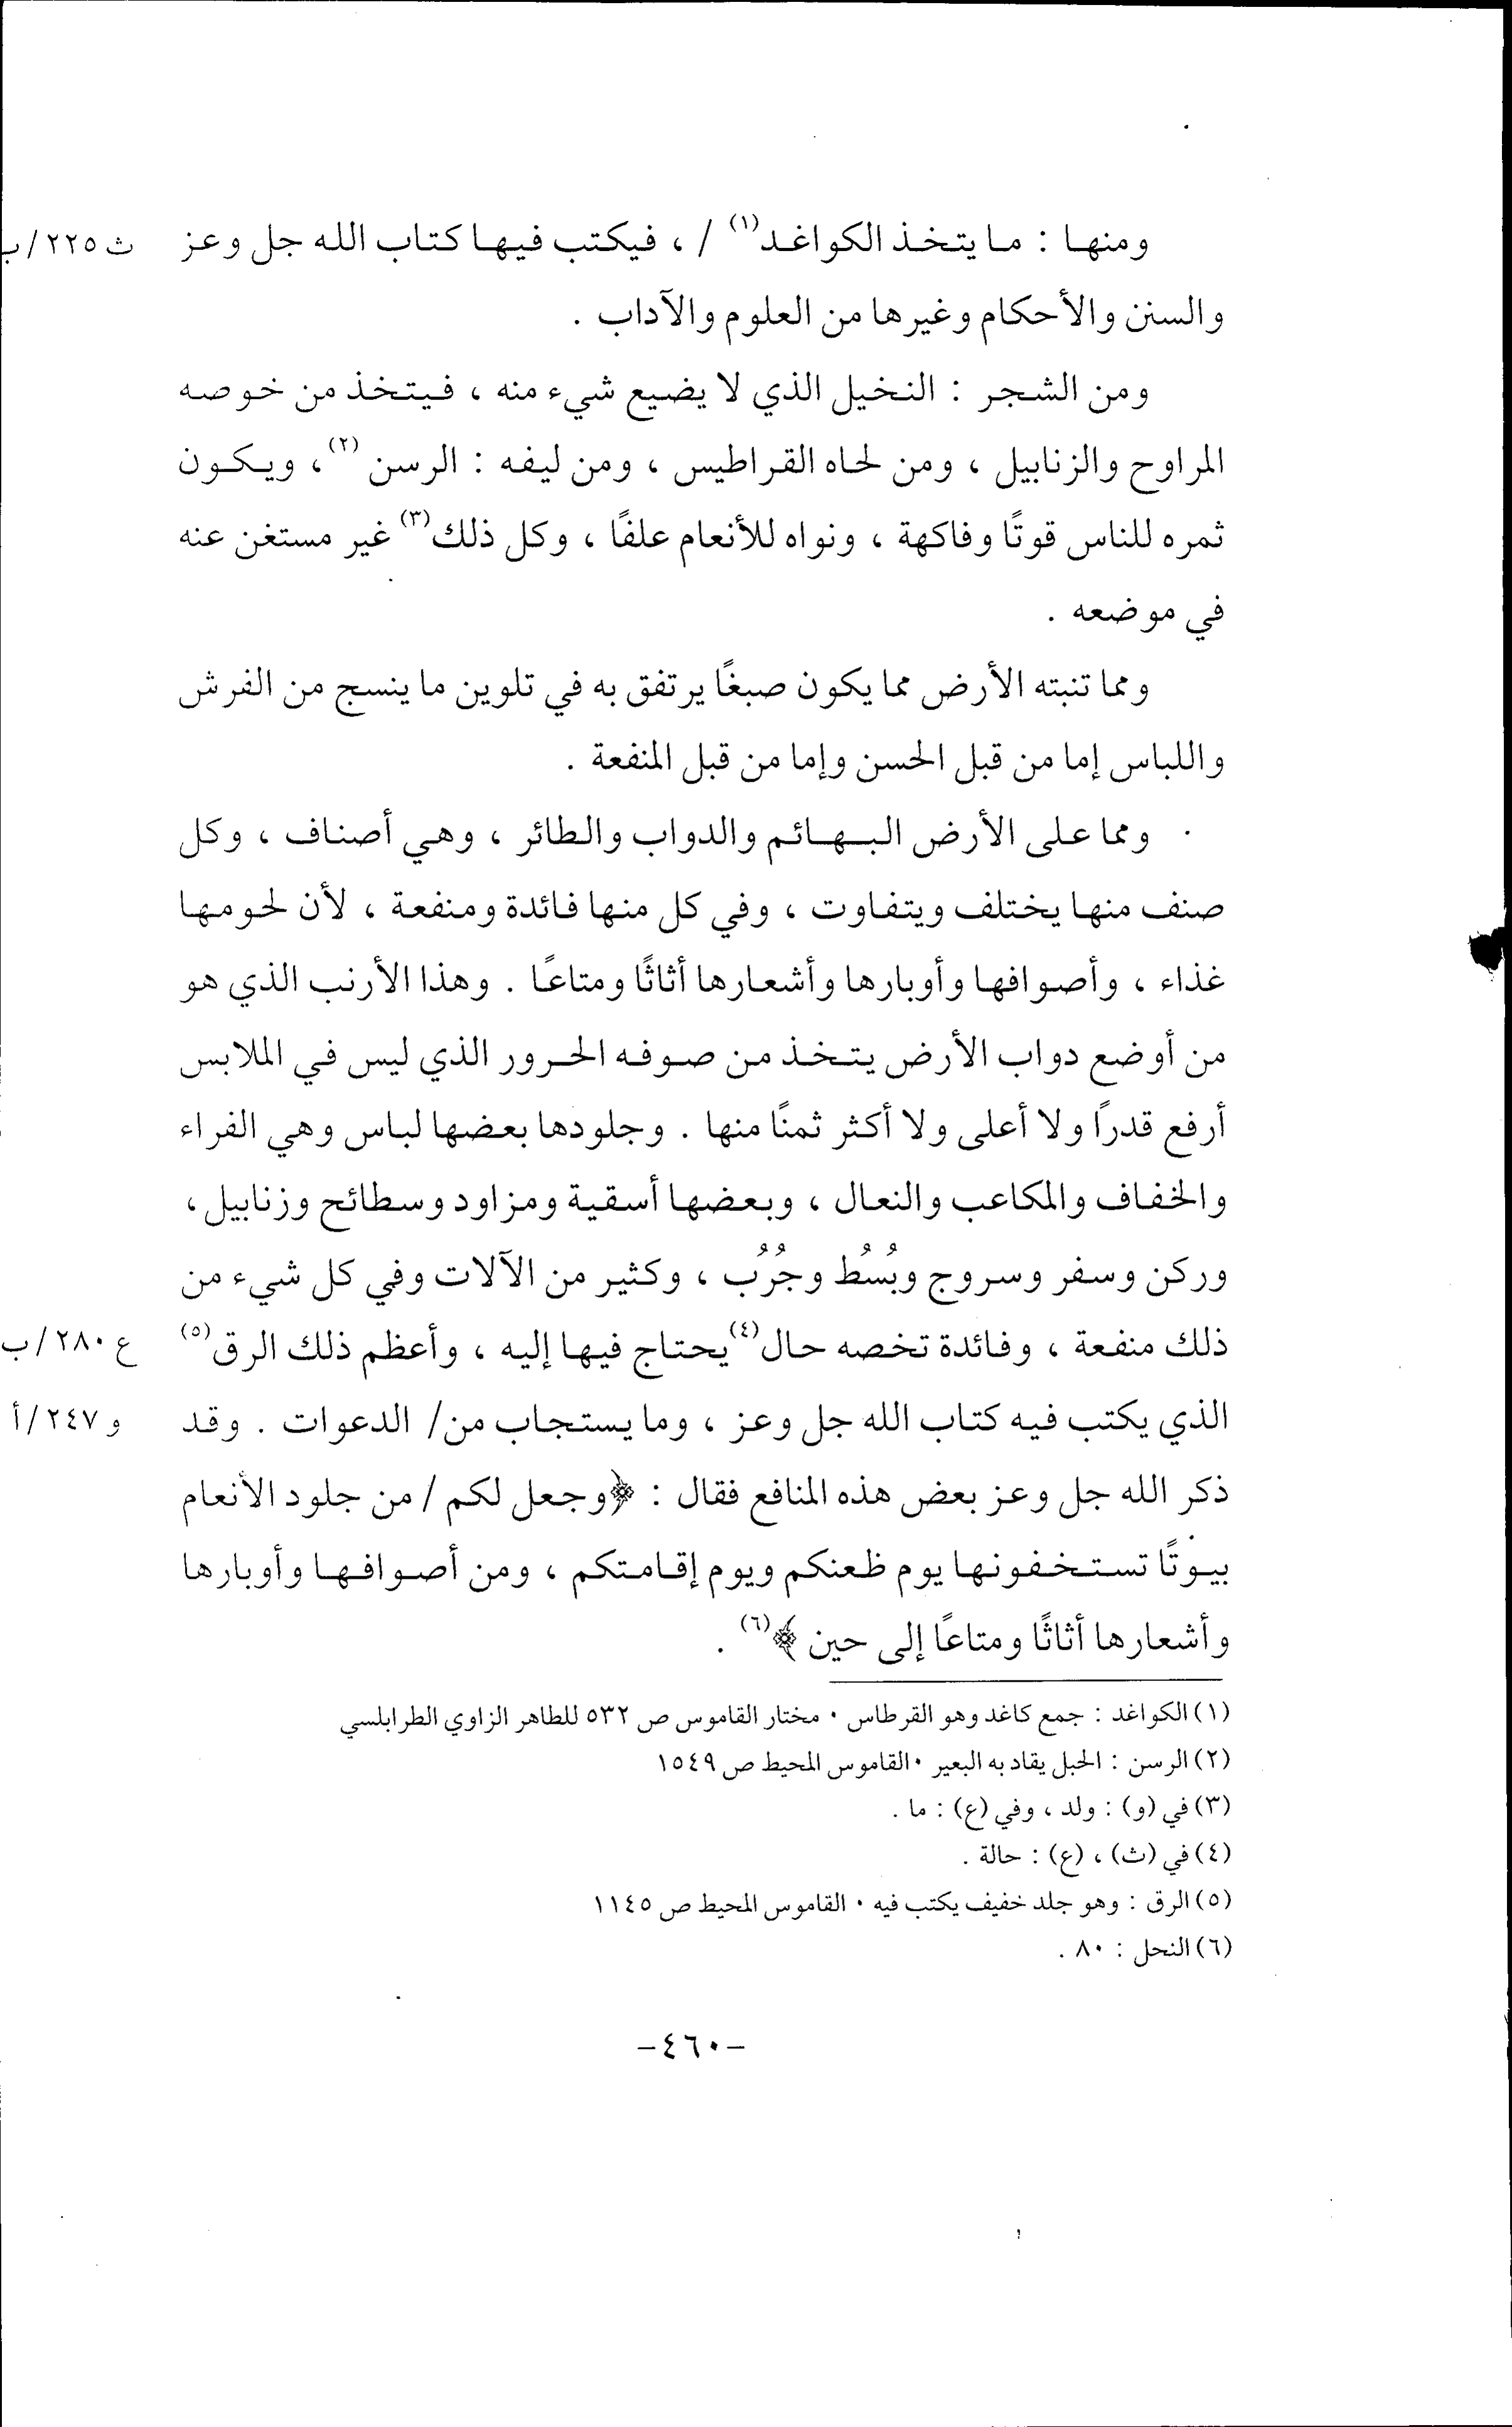 ومنها : ما يتخذ الكواغد(١) / ، فيكتب فيها كتاب الله جل وعز ث ٢٢٥/ب
والسنن والأحكام وغيرها من العلوم والآداب .
ومن الشجر : النخيل الذي لا يضيع شيء منه ، فيتخذ من خوصه
المراوح والزنابيل ، ومن لحاه القراطيس ، ومن ليفه : الرسن (٢)، ويكون
ثمره للناس قوتًا وفاكهة ، ونواه للأنعام علفًا ، وكل ذلك(٣) غير مستغن عنه
في موضعه .
ومما تنبته الأرض مما يكون صبغًا يرتفق به في تلوين ما ينسج من الفرش
واللباس إما من قبل الحسن وإما من قبل المنفعة .
ومما على الأرض البهائم والدواب والطائر ، وهي أصناف ، وكل
صنف منها يختلف ويتفاوت ، وفي كل منها فائدة ومنفعة ، لأن لحومها
غذاء ، وأصوافها وأوبارها وأشعارها أثاثًا ومتاعًا . وهذا الأرنب الذي هو
من أوضع دواب الأرض يتخذ من صوفه الحرور الذي ليس في الملابس
أرفع قدرًا ولا أعلى ولا أكثر ثمنًا منها . وجلودها بعضها لباس وهي الفراء
والخفاف والمكاعب والنعال ، وبعضها أسقية ومزاود وسطائح وزنابيل ،
وركن وسفر وسروج وبُسُط وجُرُب ، وكثير من الآلات وفي كل شيء من
ذلك منفعة ، وفائدة تخصه حال(٤) يحتاج فيها إليه ، وأعظم ذلك الرق(٥) ع ٢٨٠/ب
الذي يكتب فيه كتاب الله جل وعز ، وما يستجاب من/ الدعوات . وقد و ٢٤٧/أ
ذكر الله جل وعز بعض هذه المنافع فقال : ﴿وجعل لكم / من جلود الأنعام
بيوتًا تستخفونها يوم ظعنكم ويوم إقامتكم ، ومن أصوافها وأوبارها
وأشعارها أثاثًا ومتاعًا إلى حين ﴾(٦) .
(١) الكواغد : جمع كاغد وهو القرطاس ٠ مختار القاموس ص ٥٣٢ للطاهر الزاوي الطرابلسي
(٢) الرسن : الحبل يقاد به البعير ٠ القاموس المحيط ص ١٥٤٩
(٣) في (و) : ولد ، وفي (ع) : ما .
(٤) في (ث) ، (ع) : حالة .
(٥) الرق : وهو جلد خفيف يكتب فيه ٠ القاموس المحيط ص ١١٤٥
(٦) النحل : ٨٠ .
-٤٦٠-